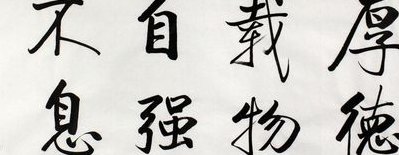 厚德
载物
自强
不息